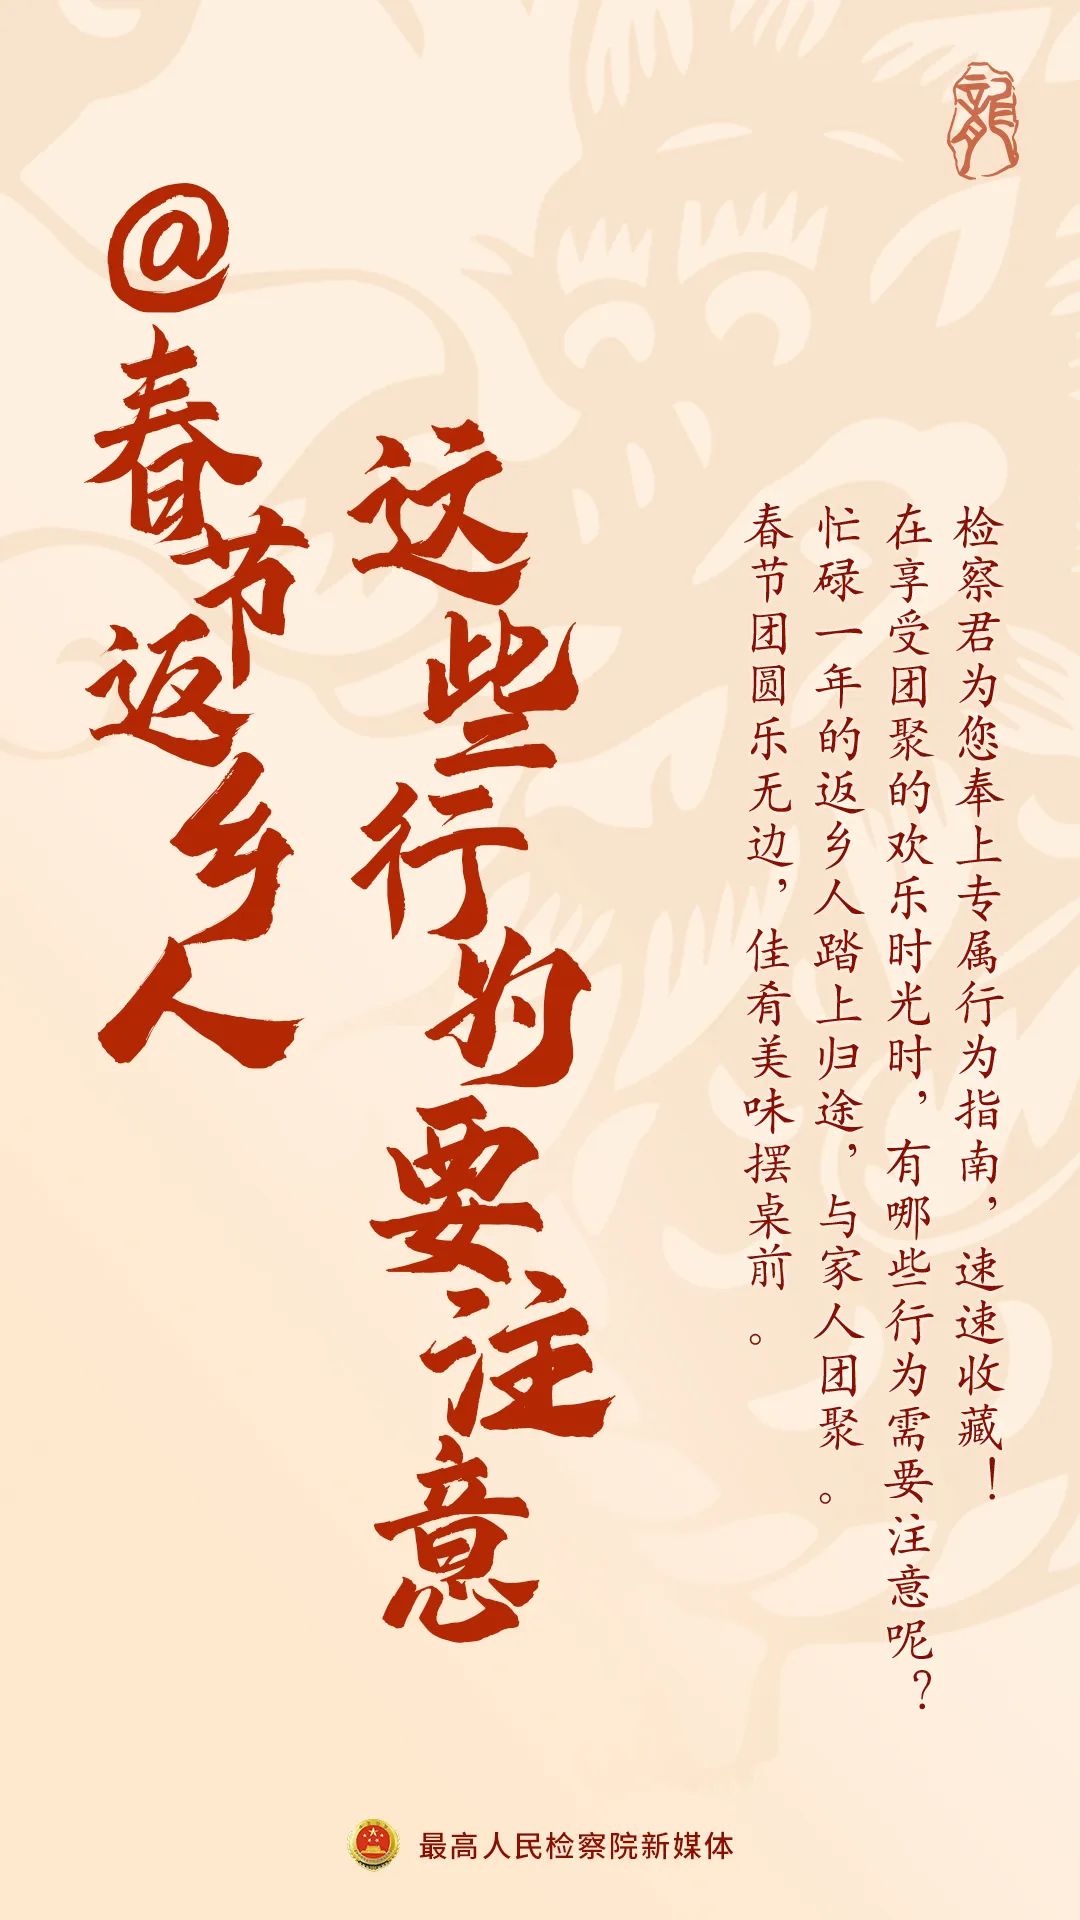 龍
@春节返乡人
这些行为要注意
春节团圆乐无边，佳肴美味摆桌前。
忙碌一年的返乡人踏上归途，与家人团聚。
在享受团聚的欢乐时光时，有哪些行为需要注意呢？
检察君为您奉上专属行为指南，速速收藏！
最高人民检察院新媒体